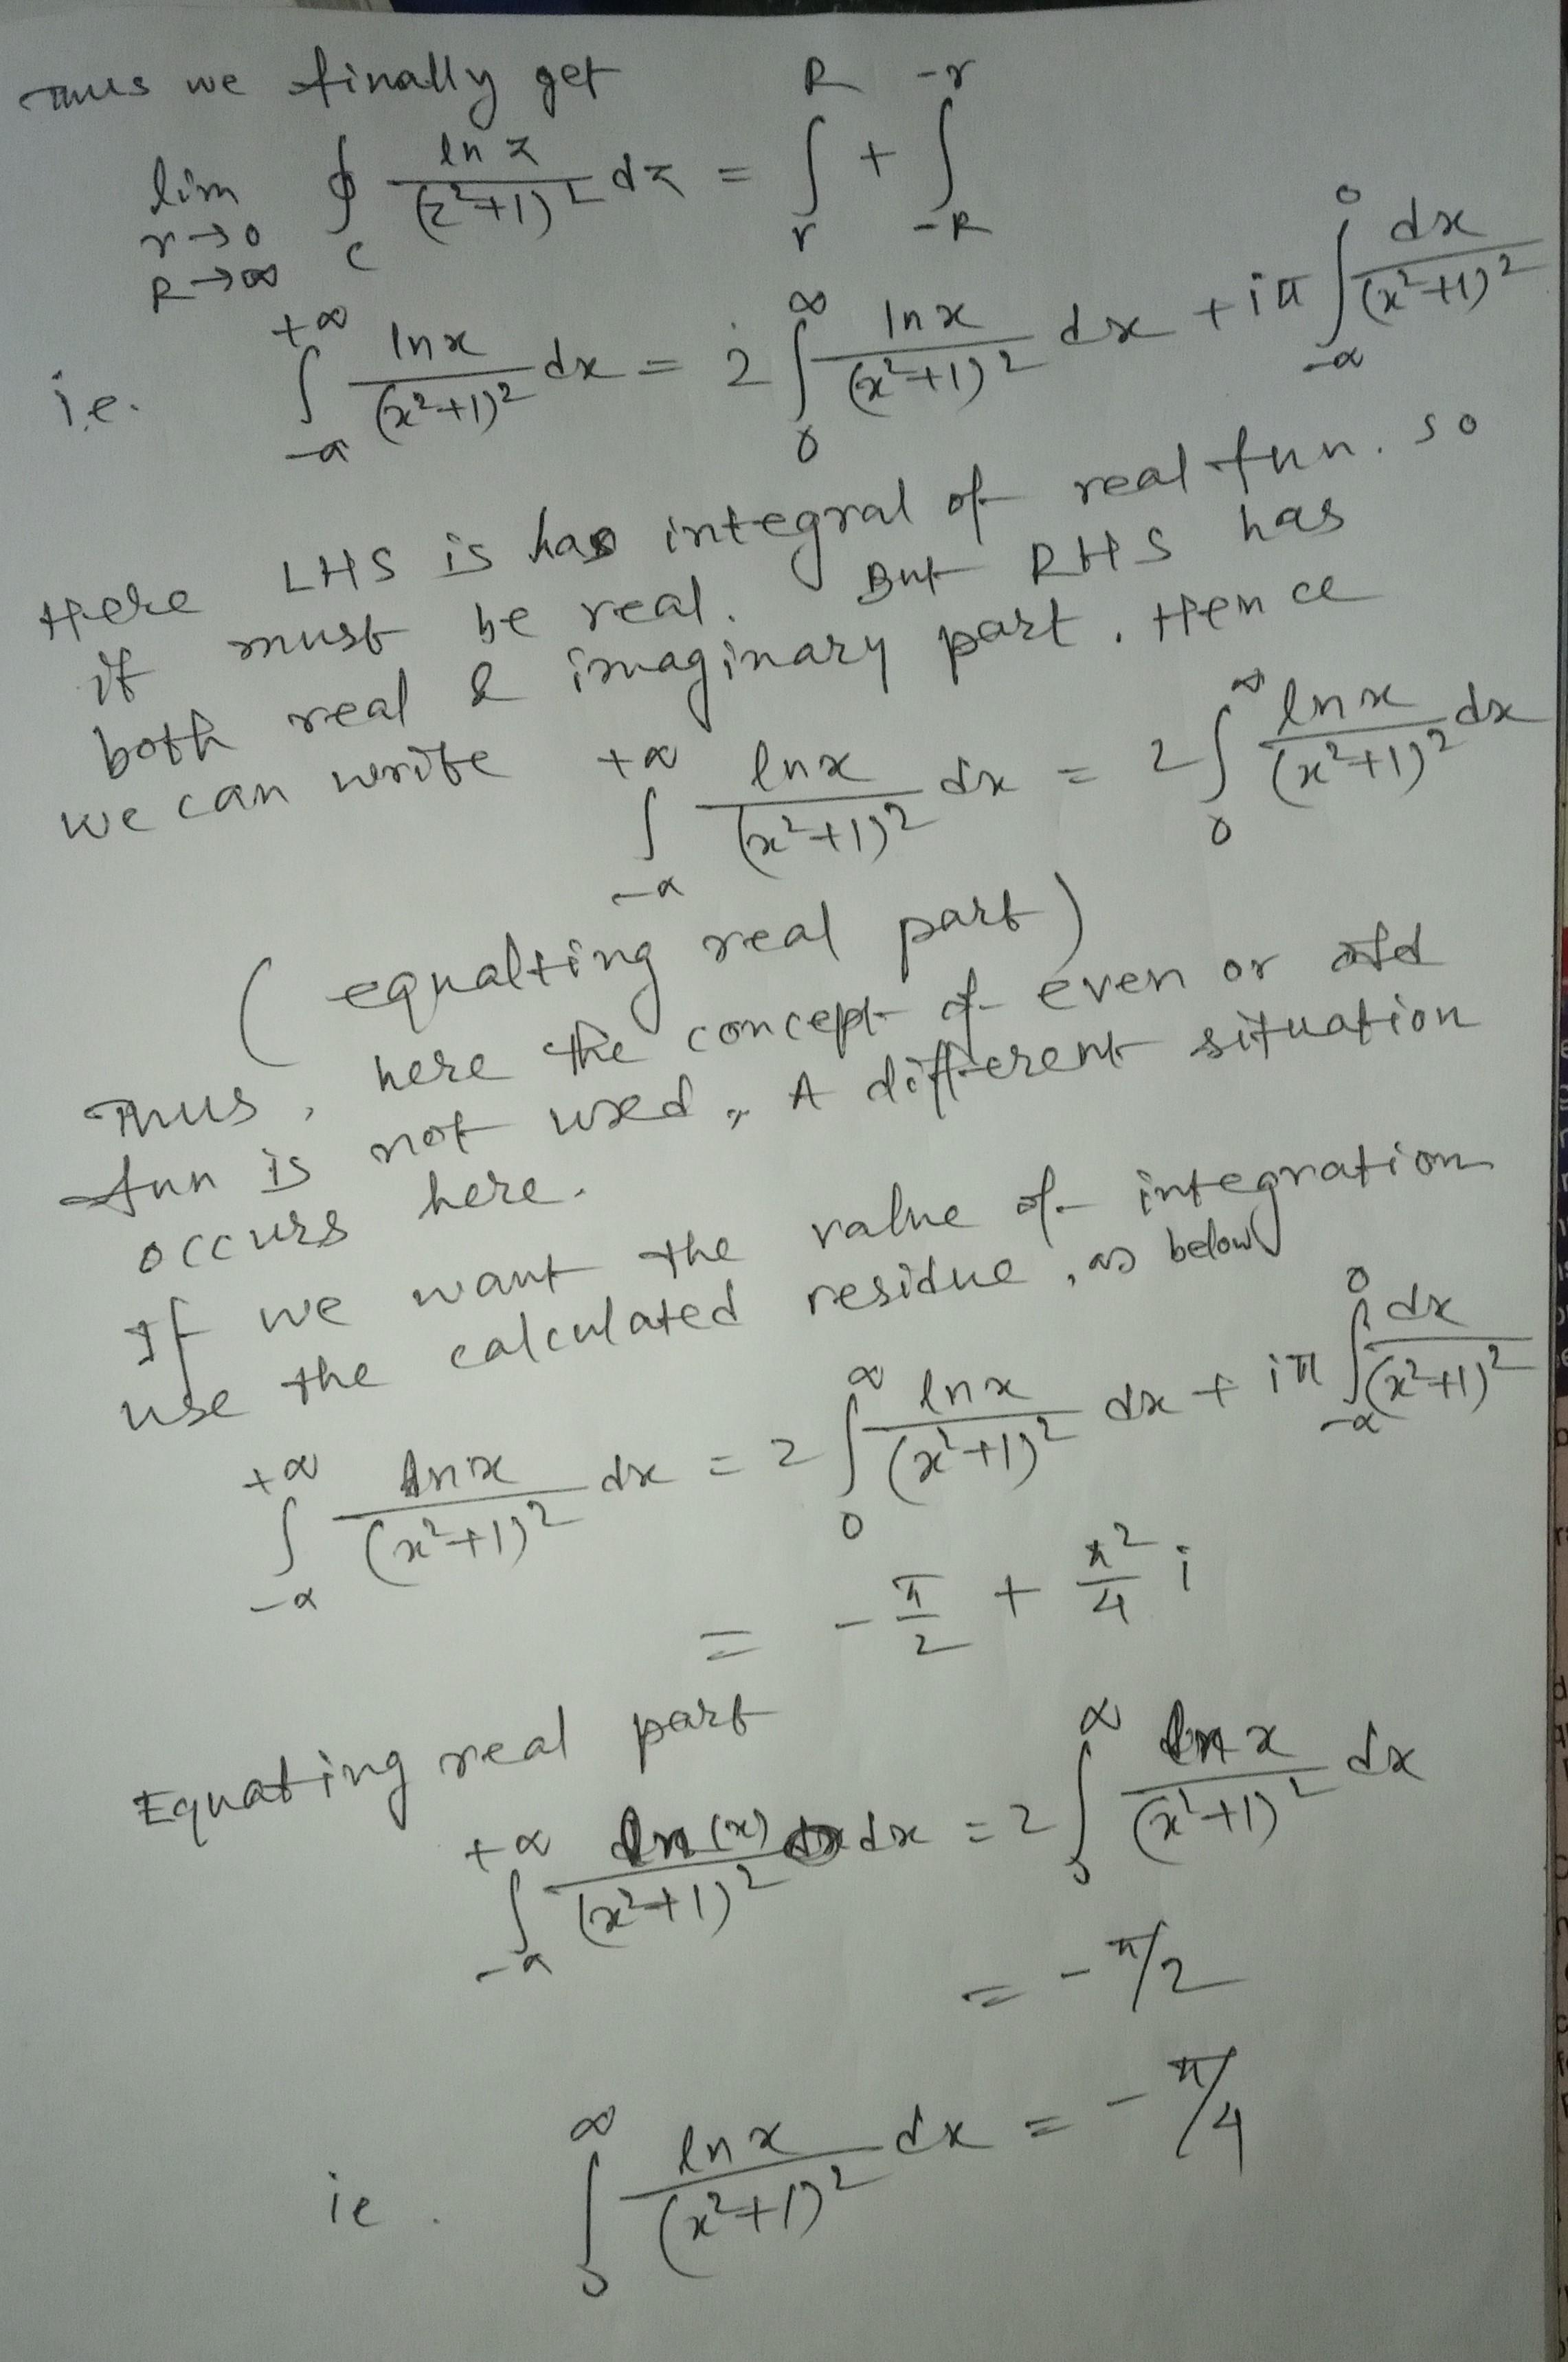 Thus we finally get
lim r→0 R→∞ ∮_C ln z/(z²+1)² dz = ∫_r^R + ∫_{-R}^{-r}
i.e. ∫_{-∞}^{+∞} ln x/(x²+1)² dx = 2 ∫_0^∞ ln x/(x²+1)² dx + iπ ∫_{-∞}^0 dx/(x²+1)²
Here LHS is has integral of real fun. so
it must be real. But RHS has
both real & imaginary part. Hence
we can write ∫_{-∞}^{+∞} ln x/(x²+1)² dx = 2 ∫_0^∞ ln x/(x²+1)² dx
( equalting real part)
Thus, here the concept of even or odd
fun is not used. A different situation
occurs here.
If we want the value of integration
use the calculated residue, as below
∫_{-∞}^{+∞} ln x/(x²+1)² dx = 2 ∫_0^∞ ln x/(x²+1)² dx + iπ ∫_{-∞}^0 dx/(x²+1)²
= -π/2 + π²/4 i
Equating real part
∫_{-∞}^{+∞} ln(x)/(x²+1)² dx = 2 ∫_0^∞ ln x/(x²+1)² dx
= -π/2
ie. ∫_0^∞ ln x/(x²+1)² dx = -π/4